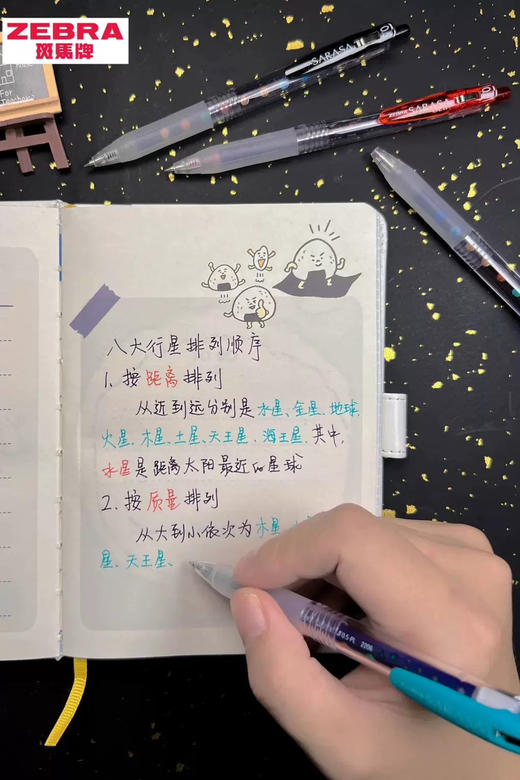 ZEBRA
斑馬牌
For
Teachers
SARASA
SARASA
八大行星排列顺序
1、按距离排列
从近到远分别是水星、金星、地球、
火星、木星、土星、天王星、海王星、其中,
水星是距离太阳最近的星球
2、按质量排列
从大到小依次为木星、
星、天王星、